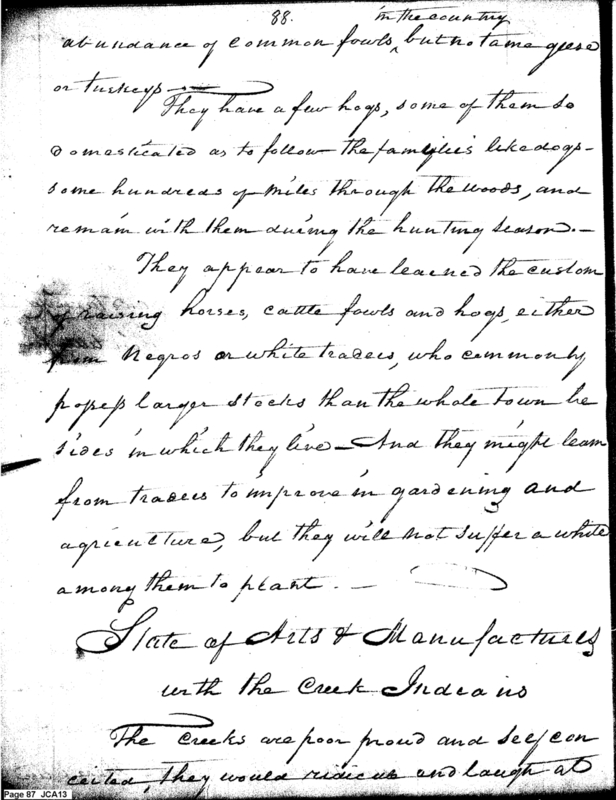 88.
in the country
abundance of common fowls, but no tame geese
or turkeys —
They have a few hogs, some of them so
domesticated as to follow the families like dogs -
some hundreds of miles through the woods, and
remain with them during the hunting season. —
They appear to have learned the custom
of raising horses, cattle fowls and hogs, either
from Negros or white traders, who commonly
possess larger stocks than the whole town be
sides in which they live — And they might learn
from traders to improve in gardening and
agriculture, but they will not suffer a white
among them to plant. —
State of Arts & Manufactures
with the Creek Indians
The Creeks are poor proud and self con
ceited, they would ridicule and laugh at
Page 87 JCA13